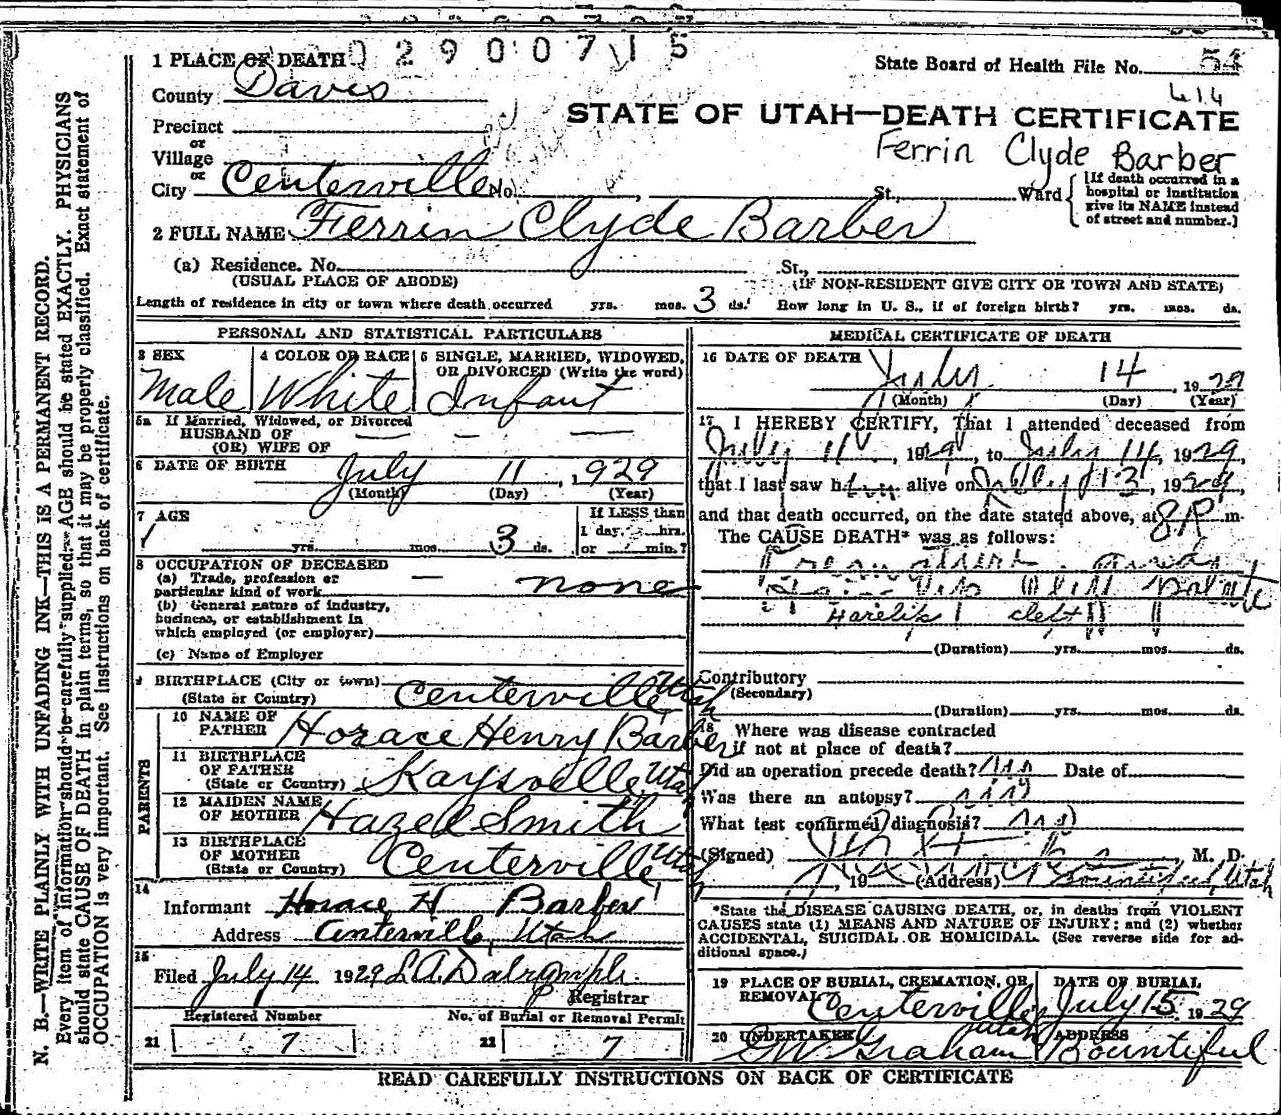 02900715
1 PLACE OF DEATH
State Board of Health File No. 54
County Davis
414
STATE OF UTAH—DEATH CERTIFICATE
Precinct
or
Ferrin Clyde Barber
Village
or
City Centerville No. St., Ward
[If death occurred in a hospital or institution give its NAME instead of street and number.]
2 FULL NAME Ferrin Clyde Barber
(a) Residence. No. St.,
(USUAL PLACE OF ABODE) (IF NON-RESIDENT GIVE CITY OR TOWN AND STATE)
Length of residence in city or town where death occurred yrs. mos. 3 ds. How long in U. S., if of foreign birth? yrs. mos. ds.
PERSONAL AND STATISTICAL PARTICULARS
3 SEX
Male
4 COLOR OR RACE
White
5 SINGLE, MARRIED, WIDOWED, OR DIVORCED (Write the word)
Infant
5a If Married, Widowed, or Divorced
HUSBAND OF
(OR) WIFE OF
6 DATE OF BIRTH July 11, 1929
(Month) (Day) (Year)
7 AGE
yrs. mos. 3 ds.
If LESS than
1 day, hrs.
or min.?
8 OCCUPATION OF DECEASED
(a) Trade, profession or
particular kind of work — none
(b) General nature of industry,
business, or establishment in
which employed (or employer)
(c) Name of Employer
9 BIRTHPLACE (City or town) Centerville Utah
(State or Country)
PARENTS
10 NAME OF FATHER Horace Henry Barber
11 BIRTHPLACE OF FATHER Kaysville Utah
(State or Country)
12 MAIDEN NAME OF MOTHER Hazel Smith
13 BIRTHPLACE OF MOTHER Centerville Utah
(State or Country)
14
Informant Horace H Barber
Address Centerville, Utah
15
Filed July 14 1929 L. A. Dalrymple
Registrar
Registered Number No. of Burial or Removal Permit
21 7 22 7
MEDICAL CERTIFICATE OF DEATH
16 DATE OF DEATH
July 14, 1929
(Month) (Day) (Year)
17 I HEREBY CERTIFY, That I attended deceased from
July 11, 1929, to July 14, 1929,
that I last saw him alive on July 13, 1929,
and that death occurred, on the date stated above, at 8 P m.
The CAUSE DEATH* was as follows:
Hair Lip Cleft Palate
Harelip cleft
(Duration) yrs. mos. ds.
Contributory
(Secondary)
(Duration) yrs. mos. ds.
18 Where was disease contracted
if not at place of death?
Did an operation precede death? no Date of
Was there an autopsy? no
What test confirmed diagnosis? no
(Signed) M. D.
, 19 (Address) Bountiful, Utah
*State the DISEASE CAUSING DEATH, or, in deaths from VIOLENT
CAUSES state (1) MEANS AND NATURE OF INJURY; and (2) whether
ACCIDENTAL, SUICIDAL OR HOMICIDAL. (See reverse side for ad-
ditional space.)
19 PLACE OF BURIAL, CREMATION, OR REMOVAL
Centerville Utah
DATE OF BURIAL
July 15 1929
20 UNDERTAKER
G.W. Graham
ADDRESS
Bountiful
READ CAREFULLY INSTRUCTIONS ON BACK OF CERTIFICATE
N. B.—WRITE PLAINLY WITH UNFADING INK—THIS IS A PERMANENT RECORD.
Every item of information should be carefully supplied. AGE should be stated EXACTLY. PHYSICIANS
should state CAUSE OF DEATH in plain terms, so that it may be properly classified. Exact statement of
OCCUPATION is very important. See instructions on back of certificate.